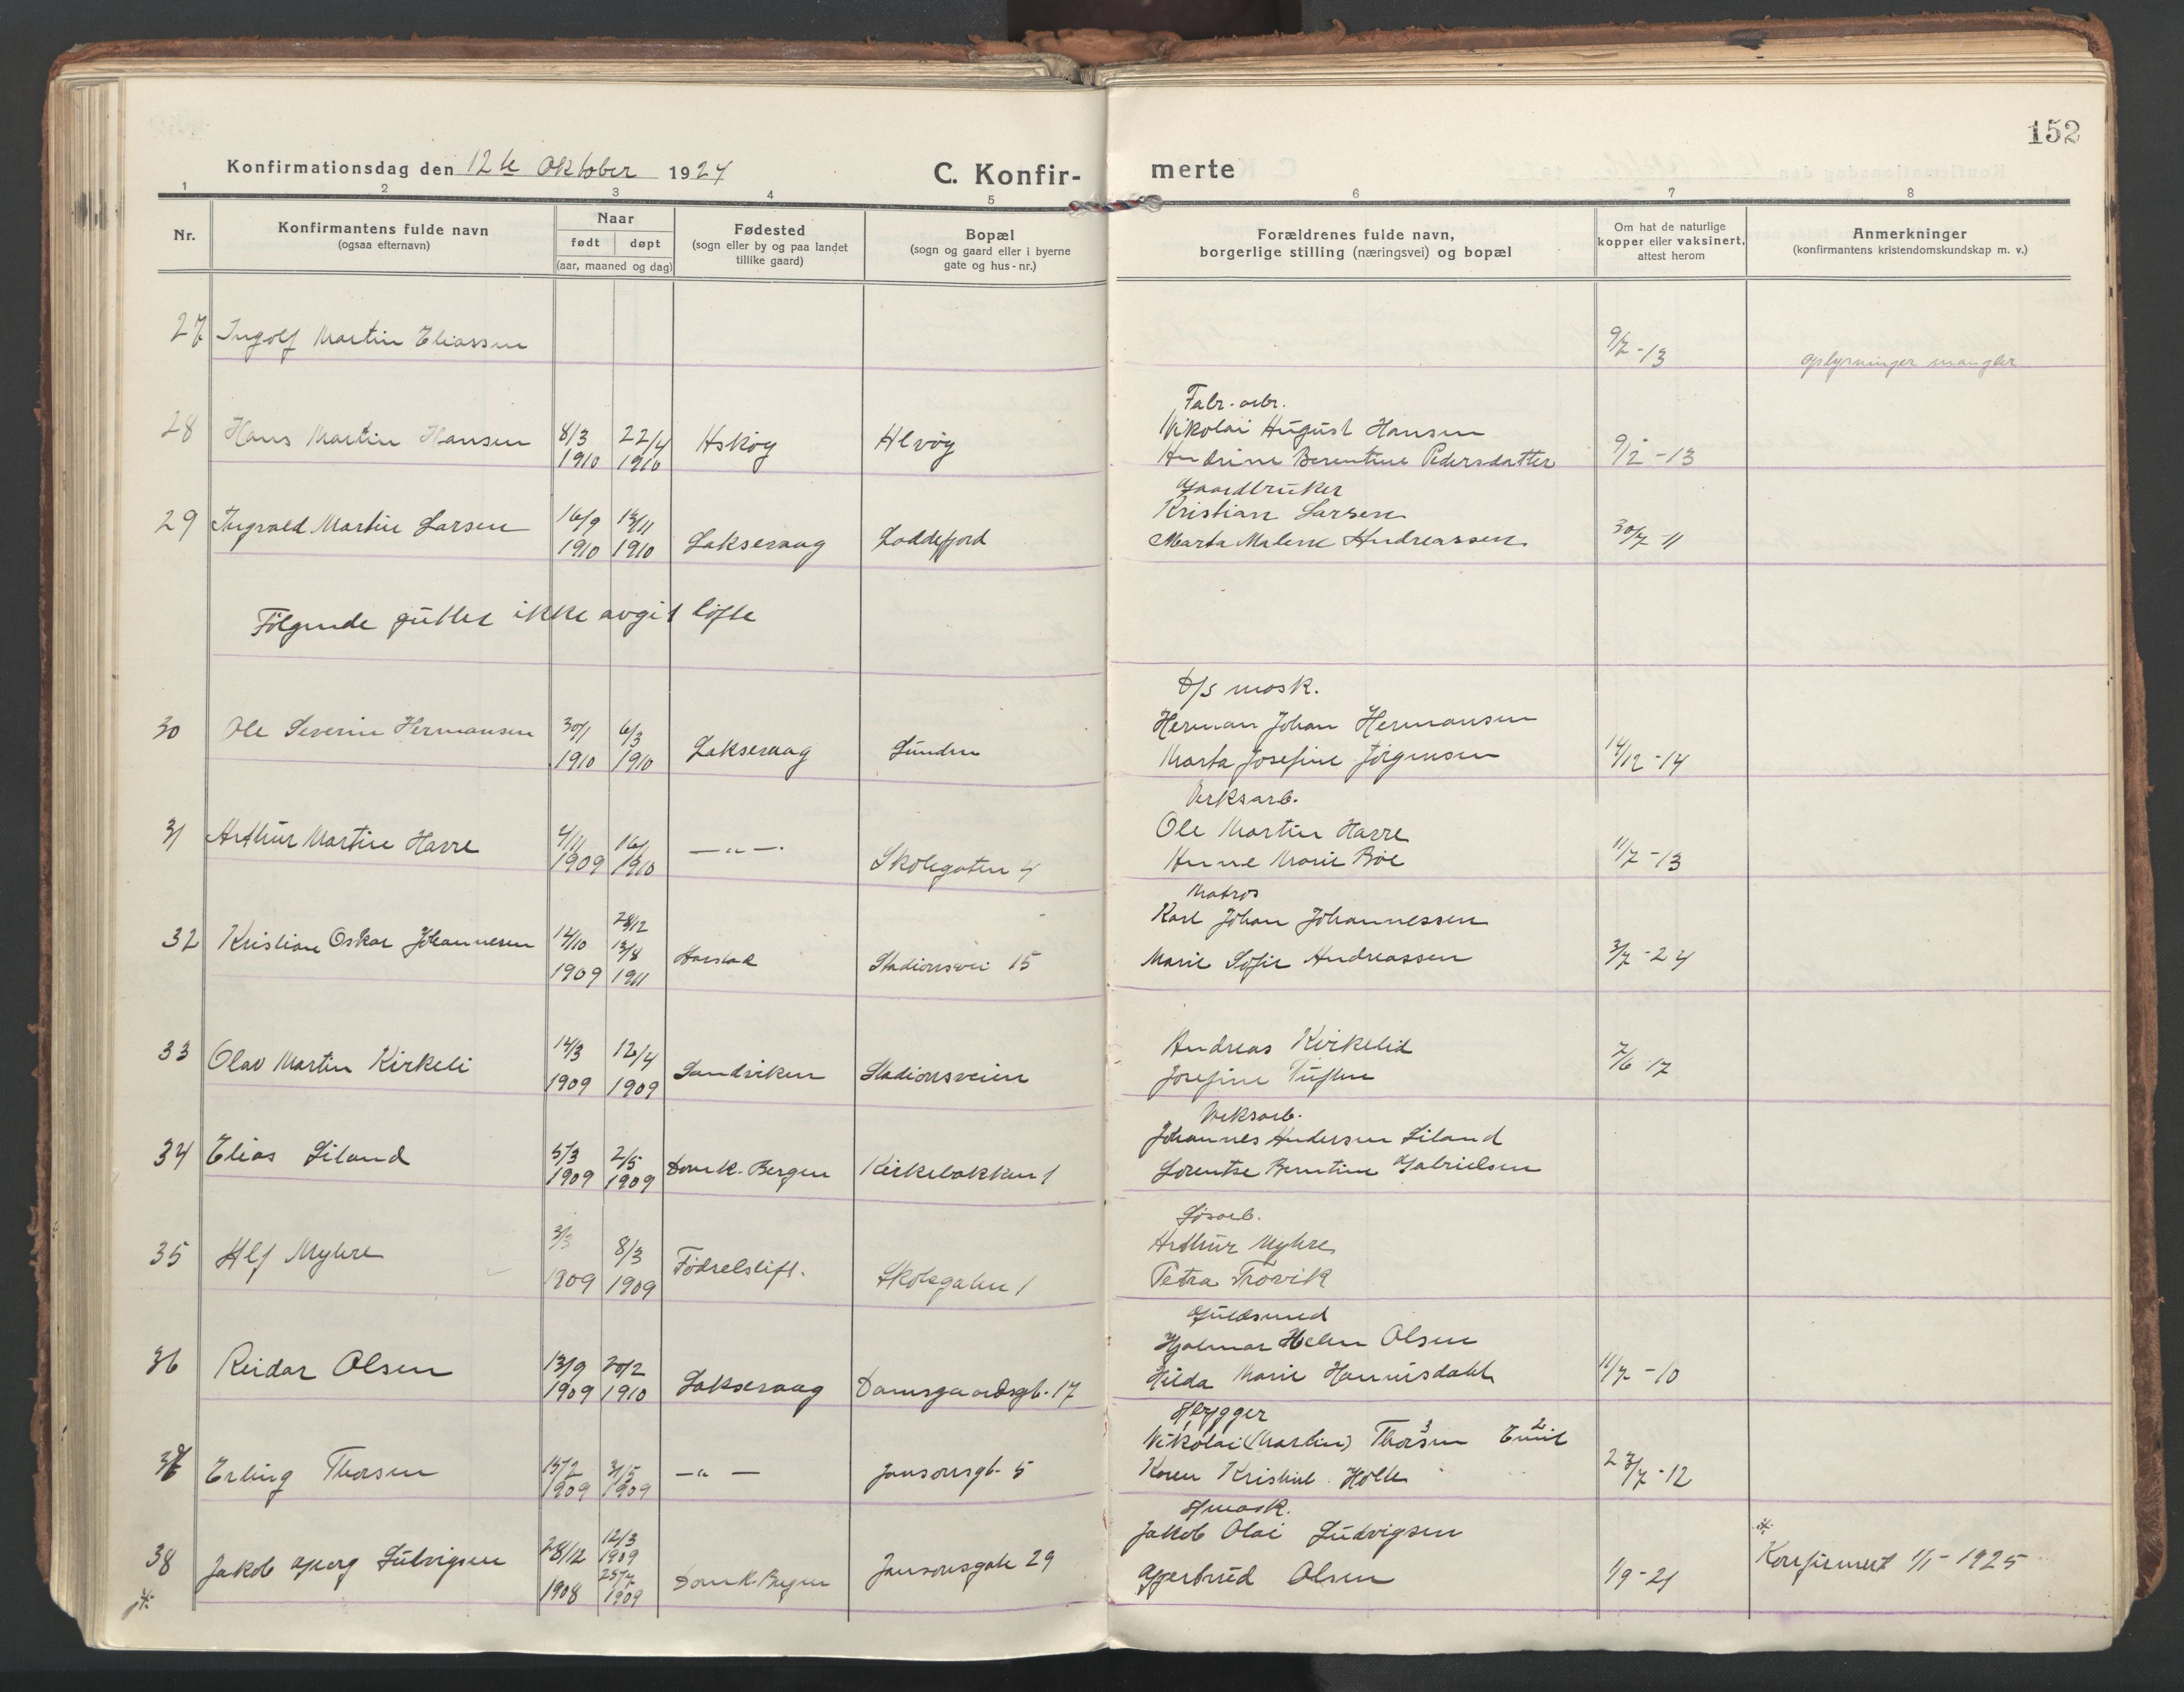 152
Konfirmationsdag den 12te Oktober 1924
C. Konfir-
merte
1 2 3 4 5 6 7 8
Nr.
Konfirmantens fulde navn
(ogsaa efternavn)
Naar
født døpt
(aar, maaned og dag)
Fødested
(sogn eller by og paa landet
tillike gaard)
Bopæl
(sogn og gaard eller i byerne
gate og hus-nr.)
Forældrenes fulde navn,
borgerlige stilling (næringsvei) og bopæl
Om hat de naturlige
kopper eller vaksinert,
attest herom
Anmerkninger
(konfirmantens kristendomskundskap m. v.)
27 Ingolf Martin Eliassen 9/7-13 oplysninger mangler
Fabr. arb.
28 Hans Martin Hansen 8/3 1910 22/4 1910 Askøy Alvøy
Nikolai August Hansen
Andrine Berentine Pedersdatter 9/2-13
Gaardbruker
29 Ingvald Martin Larsen 16/9 1910 13/11 1910 Laksevaag Loddefjord
Kristian Larsen
Marta Malene Andreassen 30/7-11
Følgende gutter ikke avgit løfte
D/s mask.
30 Ole Severin Hermansen 30/1 1910 6/3 1910 Laksevaag Sunden
Herman Johan Hermansen
Marta Josefine Jørgensen 14/12-14
Verksarb.
31 Arthur Martin Harre 4/11 1909 16/1 1910 — " —. Skolegaten 4
Ole Martin Harre
Anne Marie Bøe 11/7-13
Matros
32 Kristian Oskar Johannesen 14/10 1909 28/12 13/8 1911 Harstad Stadionsvei 15
Karl Johan Johannessen
Marie Sofie Andreassen 3/7-24
33 Olav Martin Kirkeli 14/3 1909 12/4 1909 Sandviken Stadionsveien
Andreas Kirkelid
Josefine Tuften 7/6 17
Verksarb.
34 Elias Liland 5/3 1909 2/5 1909 Domk. Bergen Kirkebakken 1
Johannes Andersen Liland
Lorentse Berntine Gabrielsen
Løsarb.
35 Alf Myhre 3/3 1909 8/3 1909 Fødselstift. Skolegaten 1
Arthur Myhre
Petra Trovik
Guldsmed
36 Reidar Olsen 13/9 1909 20/2 1910 Laksevaag Damsgaardsgt. 17
Hjalmar Helen Olsen
Hilda Marie Hannisdahl 11/7-10
Brygger
37 Erling Thorsen 15/2 1909 31/5 1909 — " — Jansonsgt. 5
Nikolai (Martin) Thorsen Emil
Karen Kristine Holm 23/7-12
mask.
38 Jakob Georg Ludvigsen 28/12 1908 12/3 1909 25/7 1909 Domk. Bergen Jansonsgate 29
Jakob Olai Ludvigsen
Gjertrud Olsen 1/9-21 Konfirmert 1/1-1925